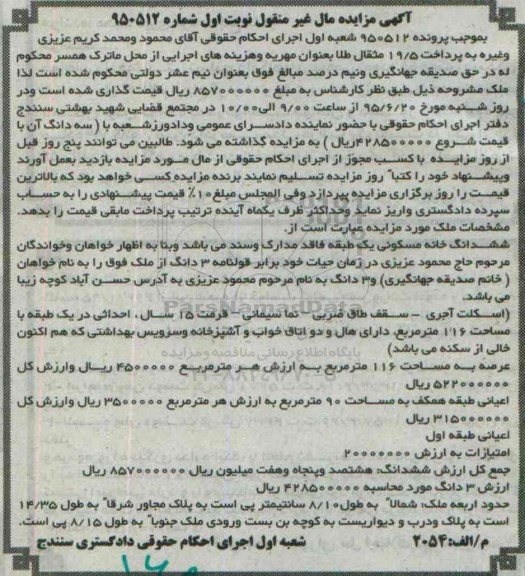 آگهی مزایده مال غیر منقول نوبت اول شماره ۹۵۰۵۱۲
بموجب پرونده ۹۵۰۵۱۲ شعبه اول اجرای احکام حقوقی آقای محمود ومحمد کریم عزیزی
وغیره به پرداخت ۱۹/۵ مثقال طلا بعنوان مهریه وهزینه های اجرایی از محل ماترک همسر محکوم
له در حق صدیقه جهانگیری ونیم درصد مبالغ فوق بعنوان نیم عشر دولتی محکوم شده است لذا
ملک مشروحه ذیل طبق نظر کارشناس به مبلغ ۸۵۷۰۰۰۰۰۰ ریال قیمت گذاری شده است ودر
روز شنبه مورخ ۹۵/۶/۲۰ از ساعت ۹/۰۰ الی۱۰/۰۰ در مجتمع قضایی شهید بهشتی سنندج
دفتر اجرای احکام حقوقی با حضور نماینده دادسرای عمومی ودادورزشعبه با ( سه دانگ آن با
قیمت شروع ۴۲۸۵۰۰۰۰۰ریال ) به مزایده گذاشته می شود. طالبین می توانند پنج روز قبل
از روز مزایده با کسب مجوز از اجرای احکام حقوقی از مال مورد مزایده بازدید بعمل آورند
وپیشنهاد خود را کتبا" روز مزایده تسلیم نمایند برنده مزایده کسی خواهد بود که بالاترین
قیمت را روز برگزاری مزایده بپردازد وفی المجلس مبلغ۱۰٪ قیمت پیشنهادی را به حساب
سپرده دادگستری واریز نماید وحداکثر ظرف یکماه آینده ترتیب پرداخت مابقی قیمت را بدهد.
مشخصات ملک مورد مزایده عبارت است از.
ششدانگ خانه مسکونی یک طبقه فاقد مدارک وسند می باشد وبنا به اظهار خواهان وخواندگان
مرحوم حاج محمود عزیزی در زمان حیات خود برابر قولنامه ۳ دانگ از ملک فوق را به نام خواهان
( خانم صدیقه جهانگیری) و۳ دانگ به نام مرحوم محمود عزیزی به آدرس حسن آباد کوچه زیبا
می باشد.
(اسکلت آجری – سقف طاق ضربی – نما سیمانی – قدمت ۱۵ سال ، احداثی در یک طبقه با
مساحت ۱۱۶ مترمربع، دارای هال و دو اتاق خواب و آشپزخانه وسرویس بهداشتی که هم اکنون
خالی از سکنه می باشد)
عرصه به مساحت ۱۱۶ مترمربع به ارزش هر مترمربع ۴۵۰۰۰۰۰ ریال وارزش کل
۵۲۲۰۰۰۰۰۰ ریال
اعیانی طبقه همکف به مساحت ۹۰ مترمربع به ارزش هر مترمربع ۳۵۰۰۰۰۰ ریال وارزش کل
۳۱۵۰۰۰۰۰۰ ریال
اعیانی طبقه اول
امتیازات به ارزش ۲۰۰۰۰۰۰۰
جمع کل ارزش ششدانگ: هشتصد وپنجاه وهفت میلیون ریال ۸۵۷۰۰۰۰۰۰ ریال
ارزش ۳ دانگ مورد محاسبه ۴۲۸۵۰۰۰۰۰ ریال
حدود اربعه ملک: شمالا" به طول۸/۱۰ سانتیمتر پی است به پلاک مجاور شرقا" به طول ۱۴/۳۵
است به پلاک ودرب و دیواریست به کوچه بن بست ورودی ملک جنوبا" به طول ۸/۱۵ پی است.
م/الف:۲۰۵۴ شعبه اول اجرای احکام حقوقی دادگستری سنندج